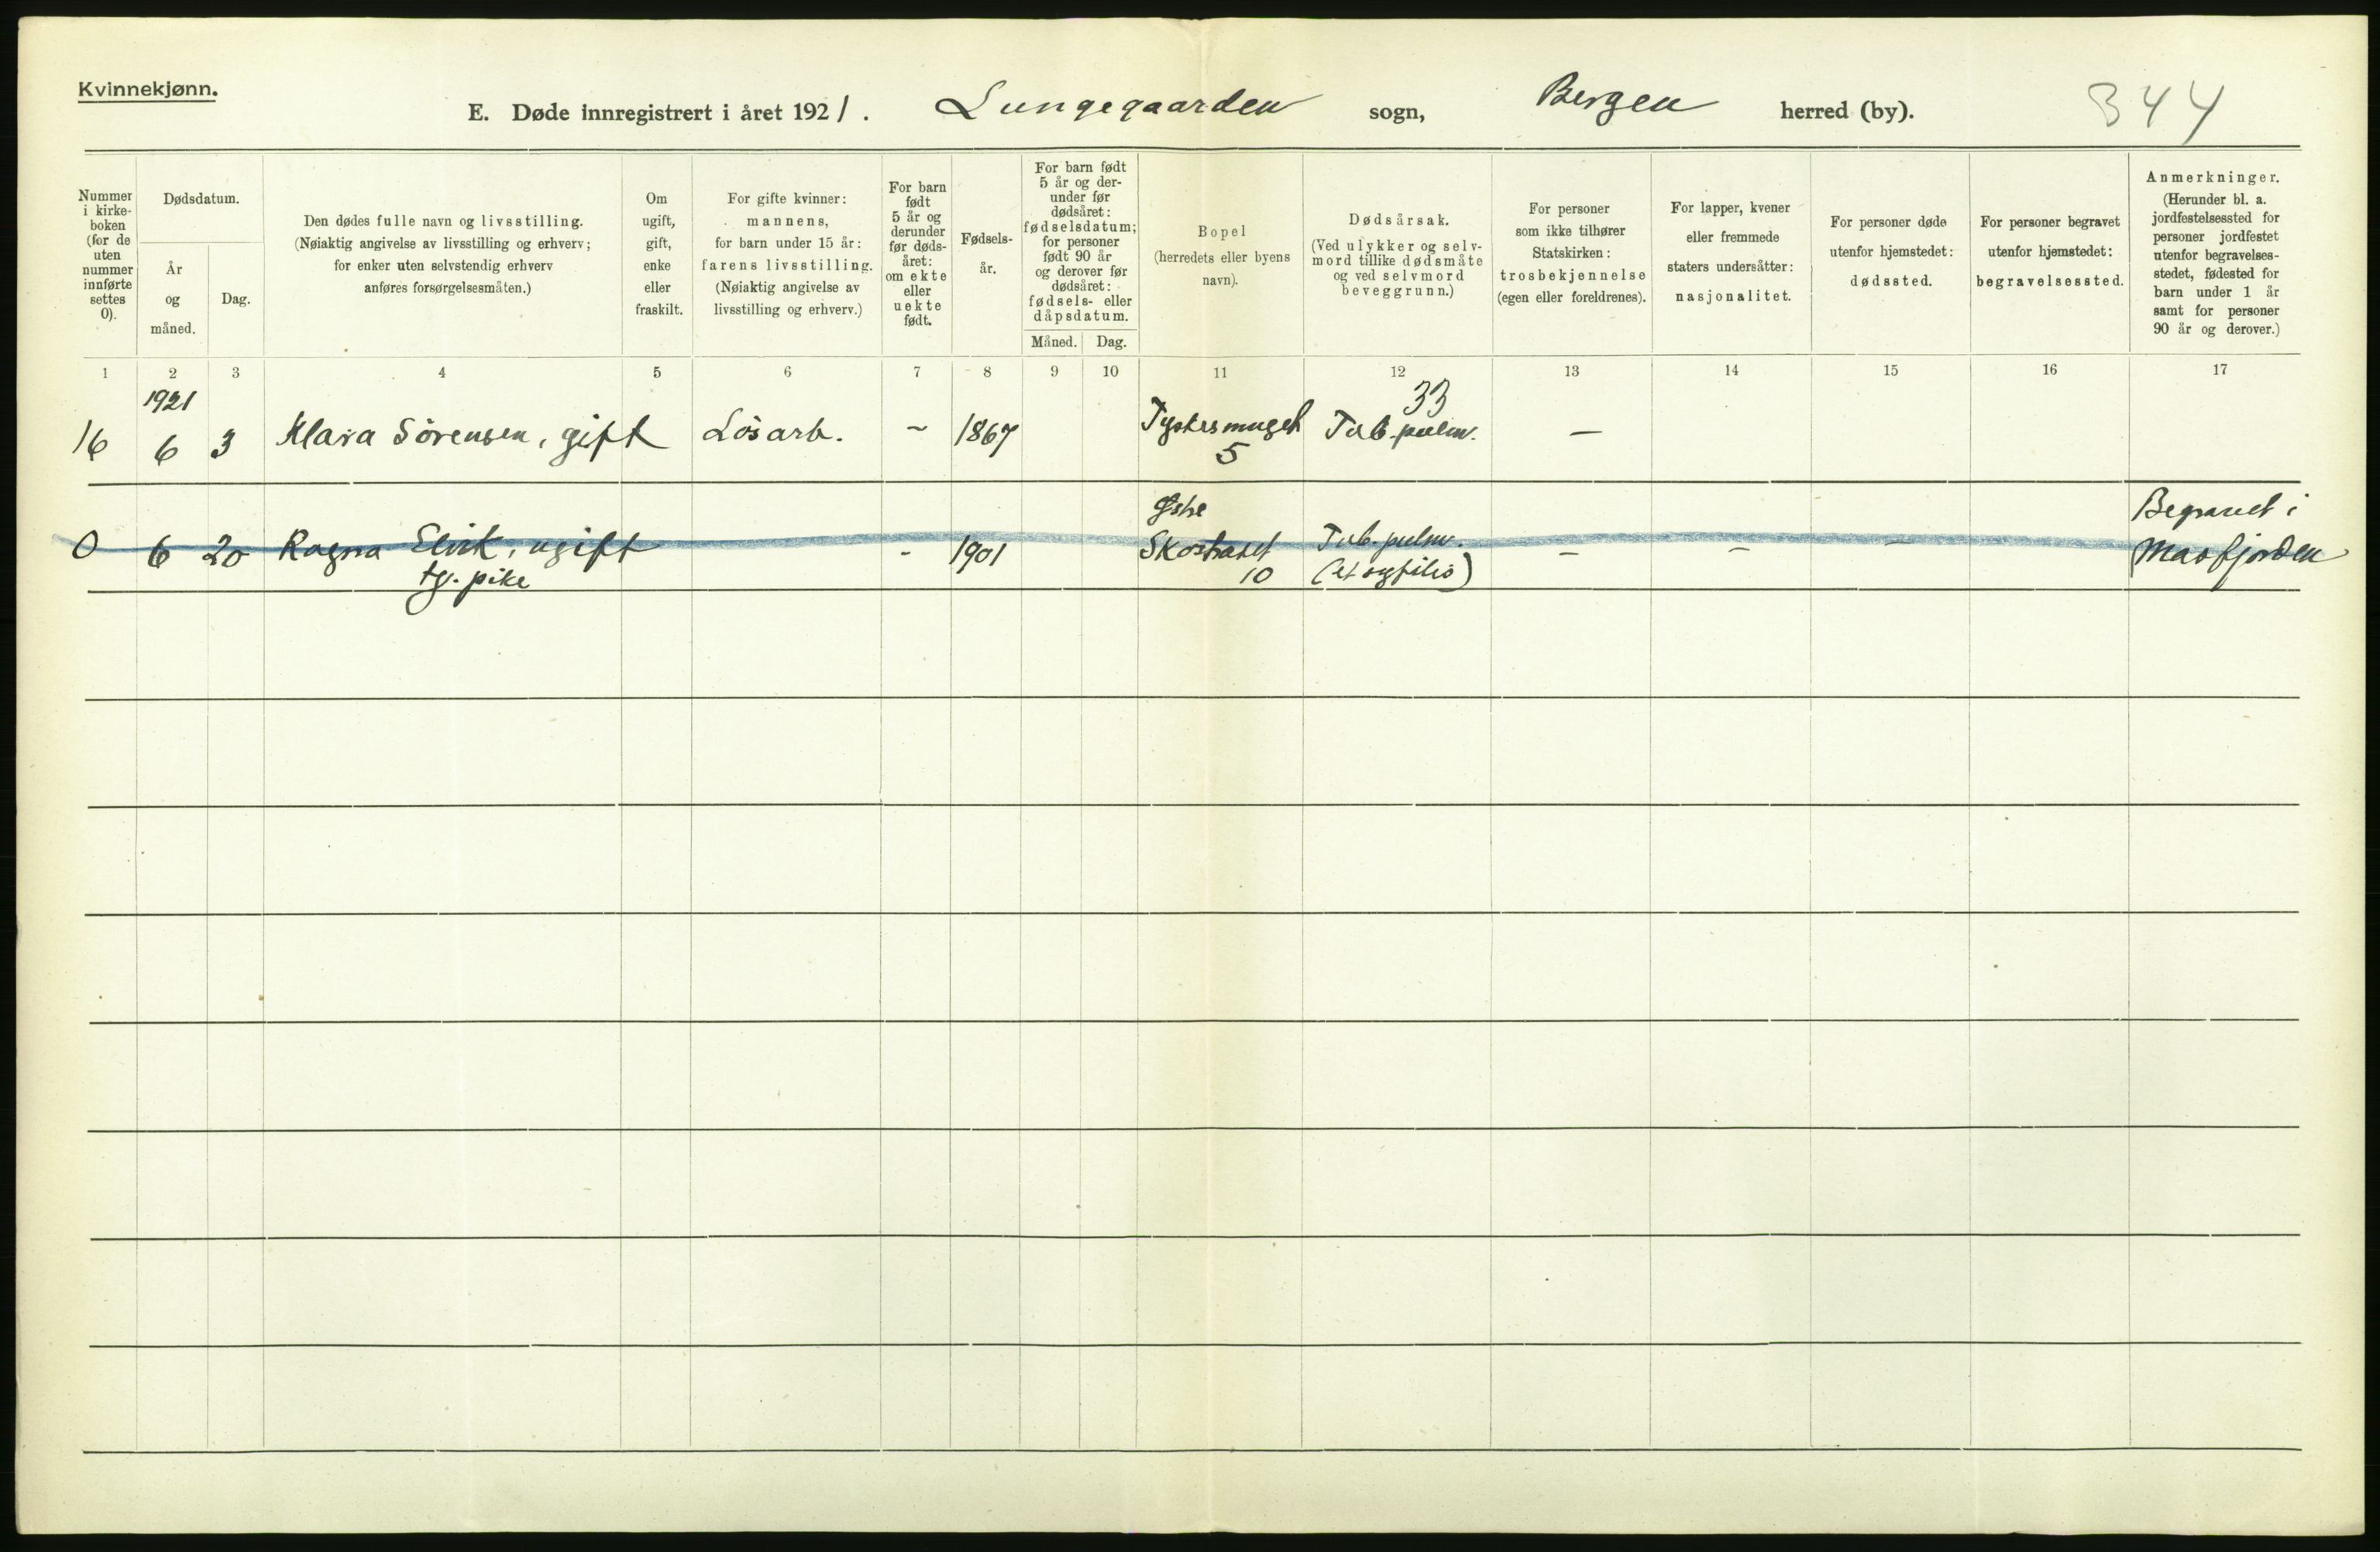 Kvinnekjønn.
E. Døde innregistrert i året 1921. Lungegaarden sogn, Bergen herred (by). 344
Nummer
i kirke-
boken
(for de
uten
nummer
innførte
settes
0).
Dødsdatum.
År
og
måned.
Dag.
Den dødes fulle navn og livsstilling.
(Nøiaktig angivelse av livsstilling og erhverv;
for enker uten selvstendig erhverv
anføres forsørgelsesmåten.)
Om
ugift,
gift,
enke
eller
fraskilt.
For gifte kvinner:
mannens,
for barn under 15 år:
farens livsstilling.
(Nøiaktig angivelse av
livsstilling og erhverv.)
For barn
født
5 år og
derunder
før døds-
året:
om ekte
eller
uekte
født.
Fødsels-
år.
For barn født
5 år og der-
under før
dødsåret:
fødselsdatum;
for personer
født 90 år
og derover før
dødsåret:
fødsels- eller
dåpsdatum.
Måned. Dag.
Bopel
(herredets eller byens
navn).
Dødsårsak.
(Ved ulykker og selv-
mord tillike dødsmåte
og ved selvmord
beveggrunn.)
For personer
som ikke tilhører
Statskirken:
trosbekjennelse
(egen eller foreldrenes).
For lapper, kvener
eller fremmede
staters undersåtter:
nasjonalitet.
For personer døde
utenfor hjemstedet:
dødssted.
For personer begravet
utenfor hjemstedet:
begravelsessted.
Anmerkninger.
(Herunder bl. a.
jordfestelsessted for
personer jordfestet
utenfor begravelses-
stedet, fødested for
barn under 1 år
samt for personer
90 år og derover.)
1 2 3 4 5 6 7 8 9 10 11 12 13 14 15 16 17
1921 33
16 6 3 Klara Sörensen, gift Lösarb. ~ 1867 Tyskesmuget Tub. pulm. —
5
Østre Begravet i
0 6 20 Ragna Elvik, ugift - 1901 Skostredet Tub. pulm. — — — Masfjorden
tj. pike 10 (et syfilis)